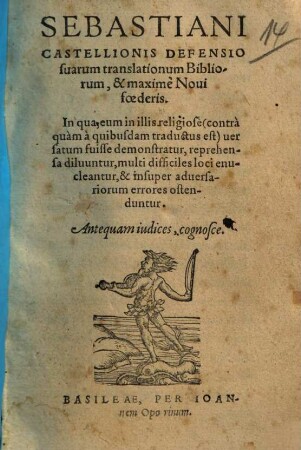 14
SEBASTIANI
CASTELLIONIS DEFENSIO
suarum translationum Biblio-
rum, & maximè Noui
fœderis.
In qua, eum in illis religiosè (contrà
quàm à quibusdam traductus est) uer
satum fuisse demonstratur, reprehen-
sa diluuntur, multi difficiles loci enu-
cleantur, & insuper aduersa-
riorum errores osten-
duntur.
Antequam iudices, cognosce.
BASILEAE, PER IOAN-
nem Oporinum.